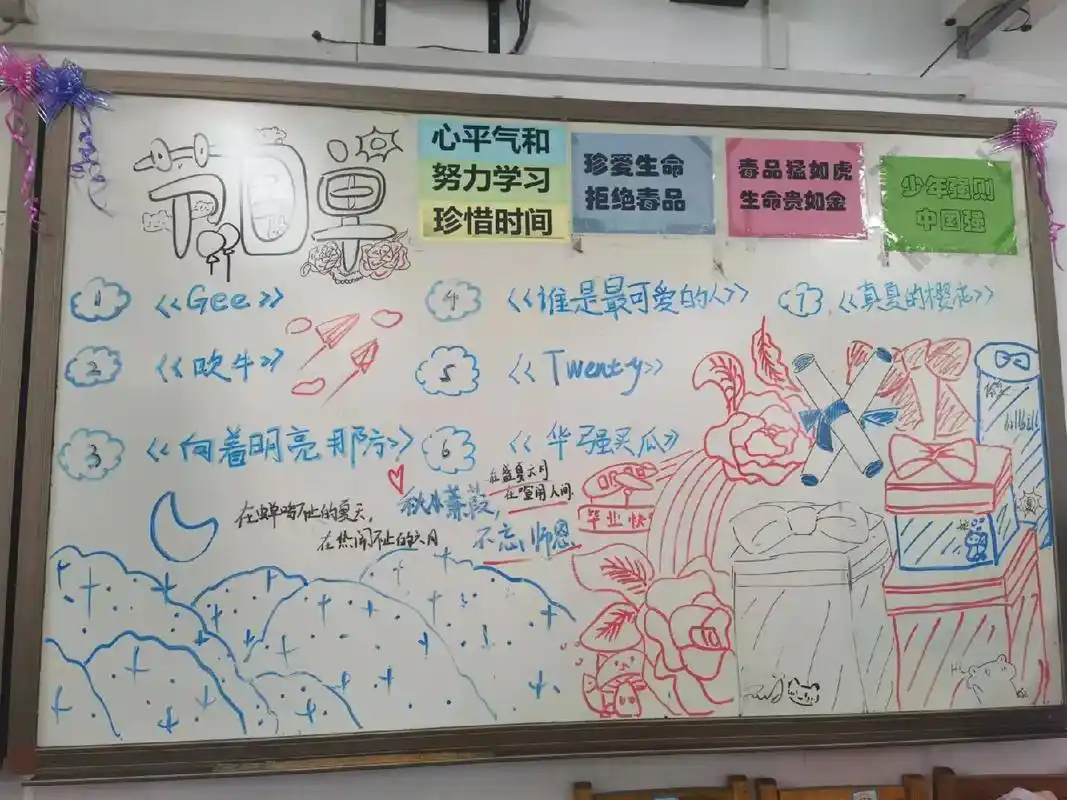 节目单
心平气和
努力学习
珍惜时间
珍爱生命
拒绝毒品
毒品猛如虎
生命贵如金
少年强则
中国强
1 《Gee》
2 《吹牛》
3 《向着明亮那方》
4 《谁是最可爱的人》
5 《Twenty》
6 《华强买瓜》
7 《真夏的樱花》
在蝉鸣不止的夏天,
在热闹不止的六月
秋水蒹葭,
不忘师恩
在盛夏六月
在喧闹人间.
毕业快
Hi